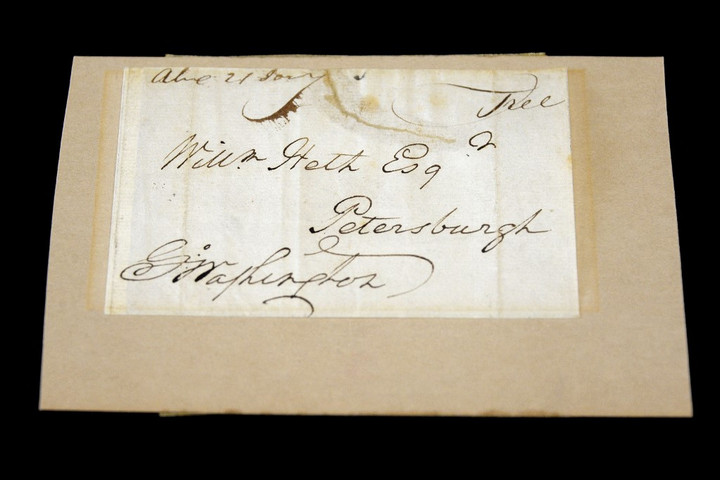 Alex 21 Jany
Free
Willm Heth Esqr
Petersburgh
Go: Washington